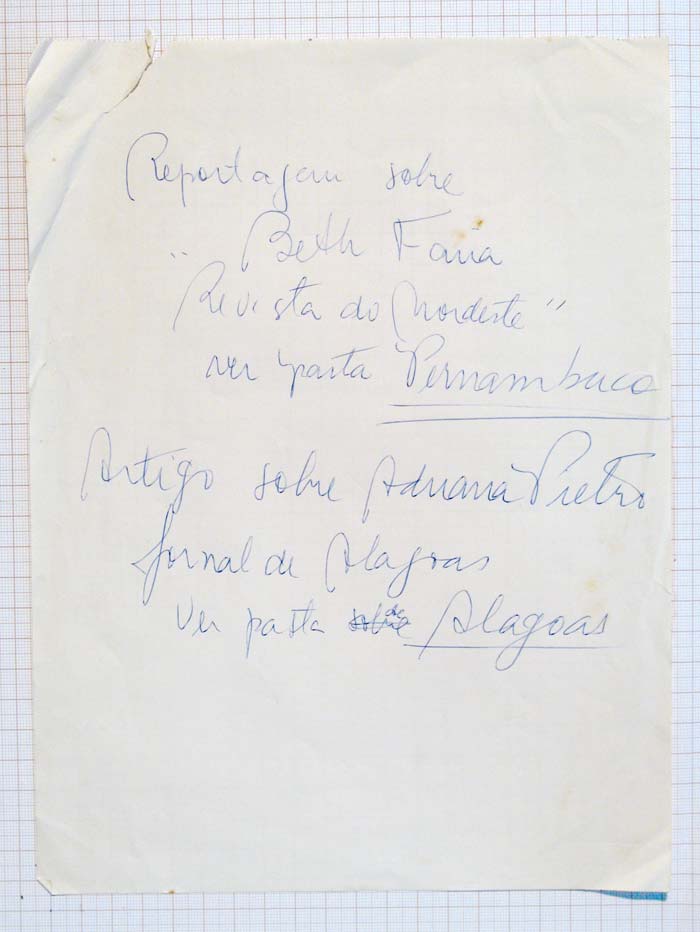 Reportagem sobre
" Beth Faria
Revista do Nordeste"
ver pasta Pernambuco
Artigo sobre Adriana Prieto
Jornal de Alagoas
Ver pasta sobre de Alagoas